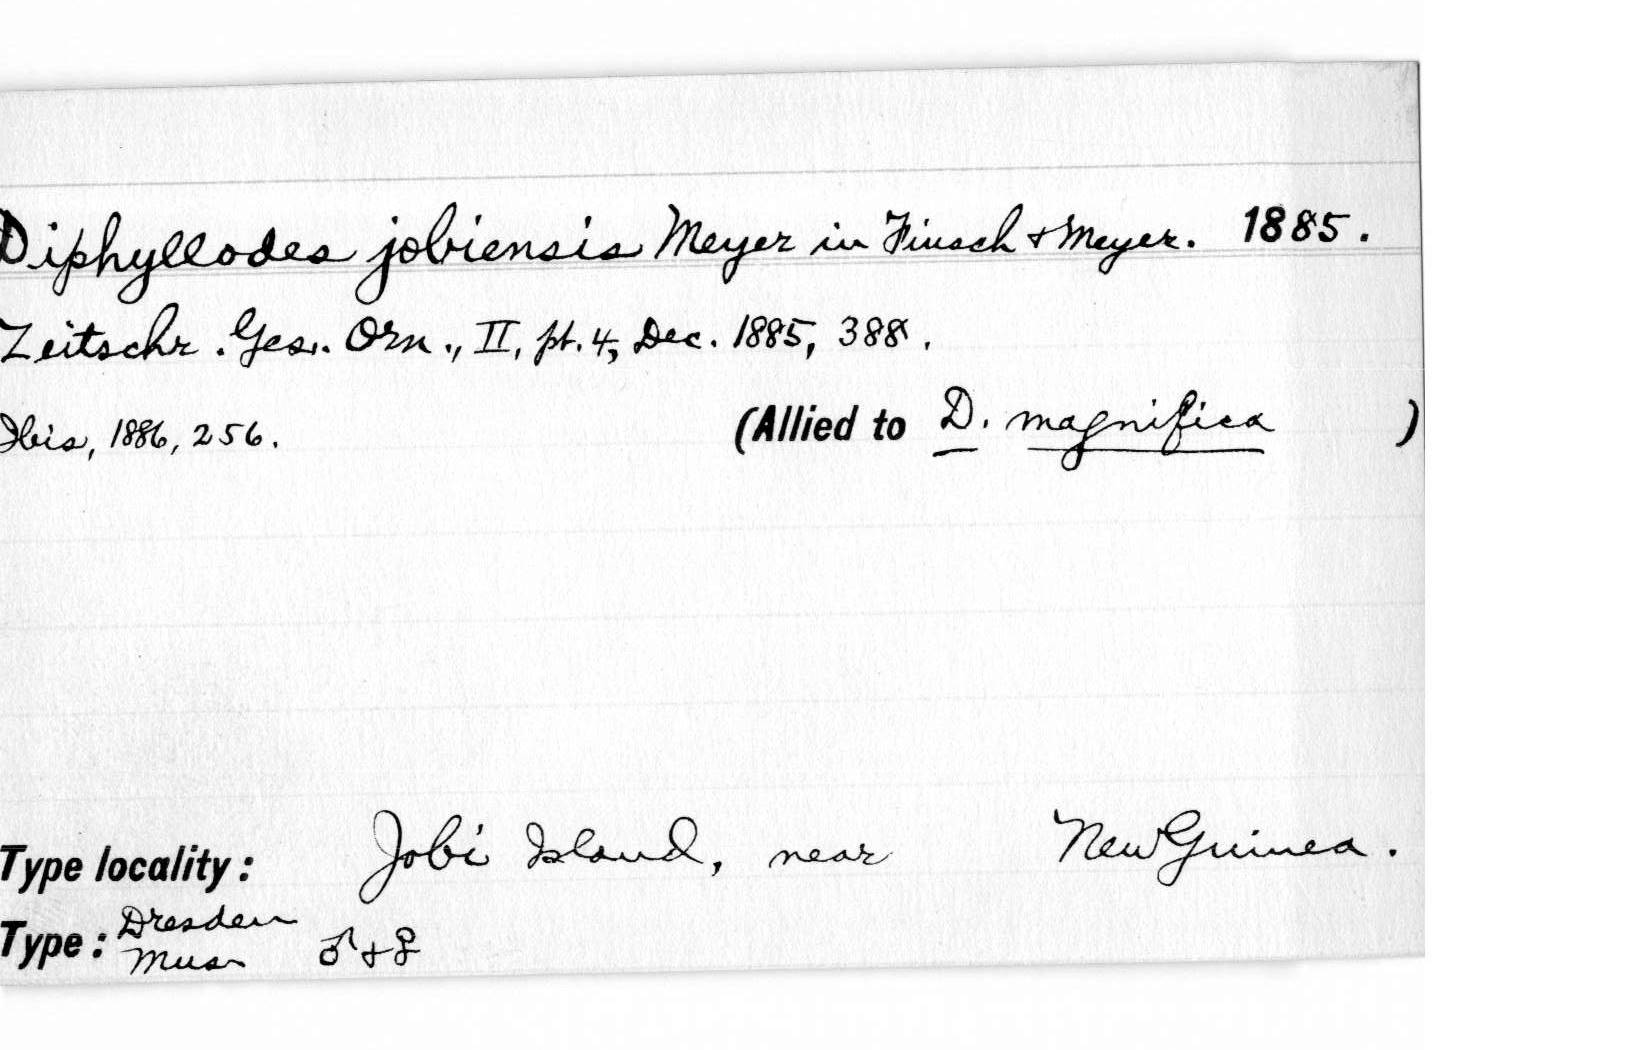 Diphyllodes jobiensis Meyer in Finsch & Meyer. 1885.
Zeitschr. Ges. Orn., II, pt. 4, Dec. 1885, 388.
Ibis, 1886, 256. (Allied to D. magnifica )
Type locality: Jobi Island, near New Guinea.
Type: Dresden Mus ♂ & ♀